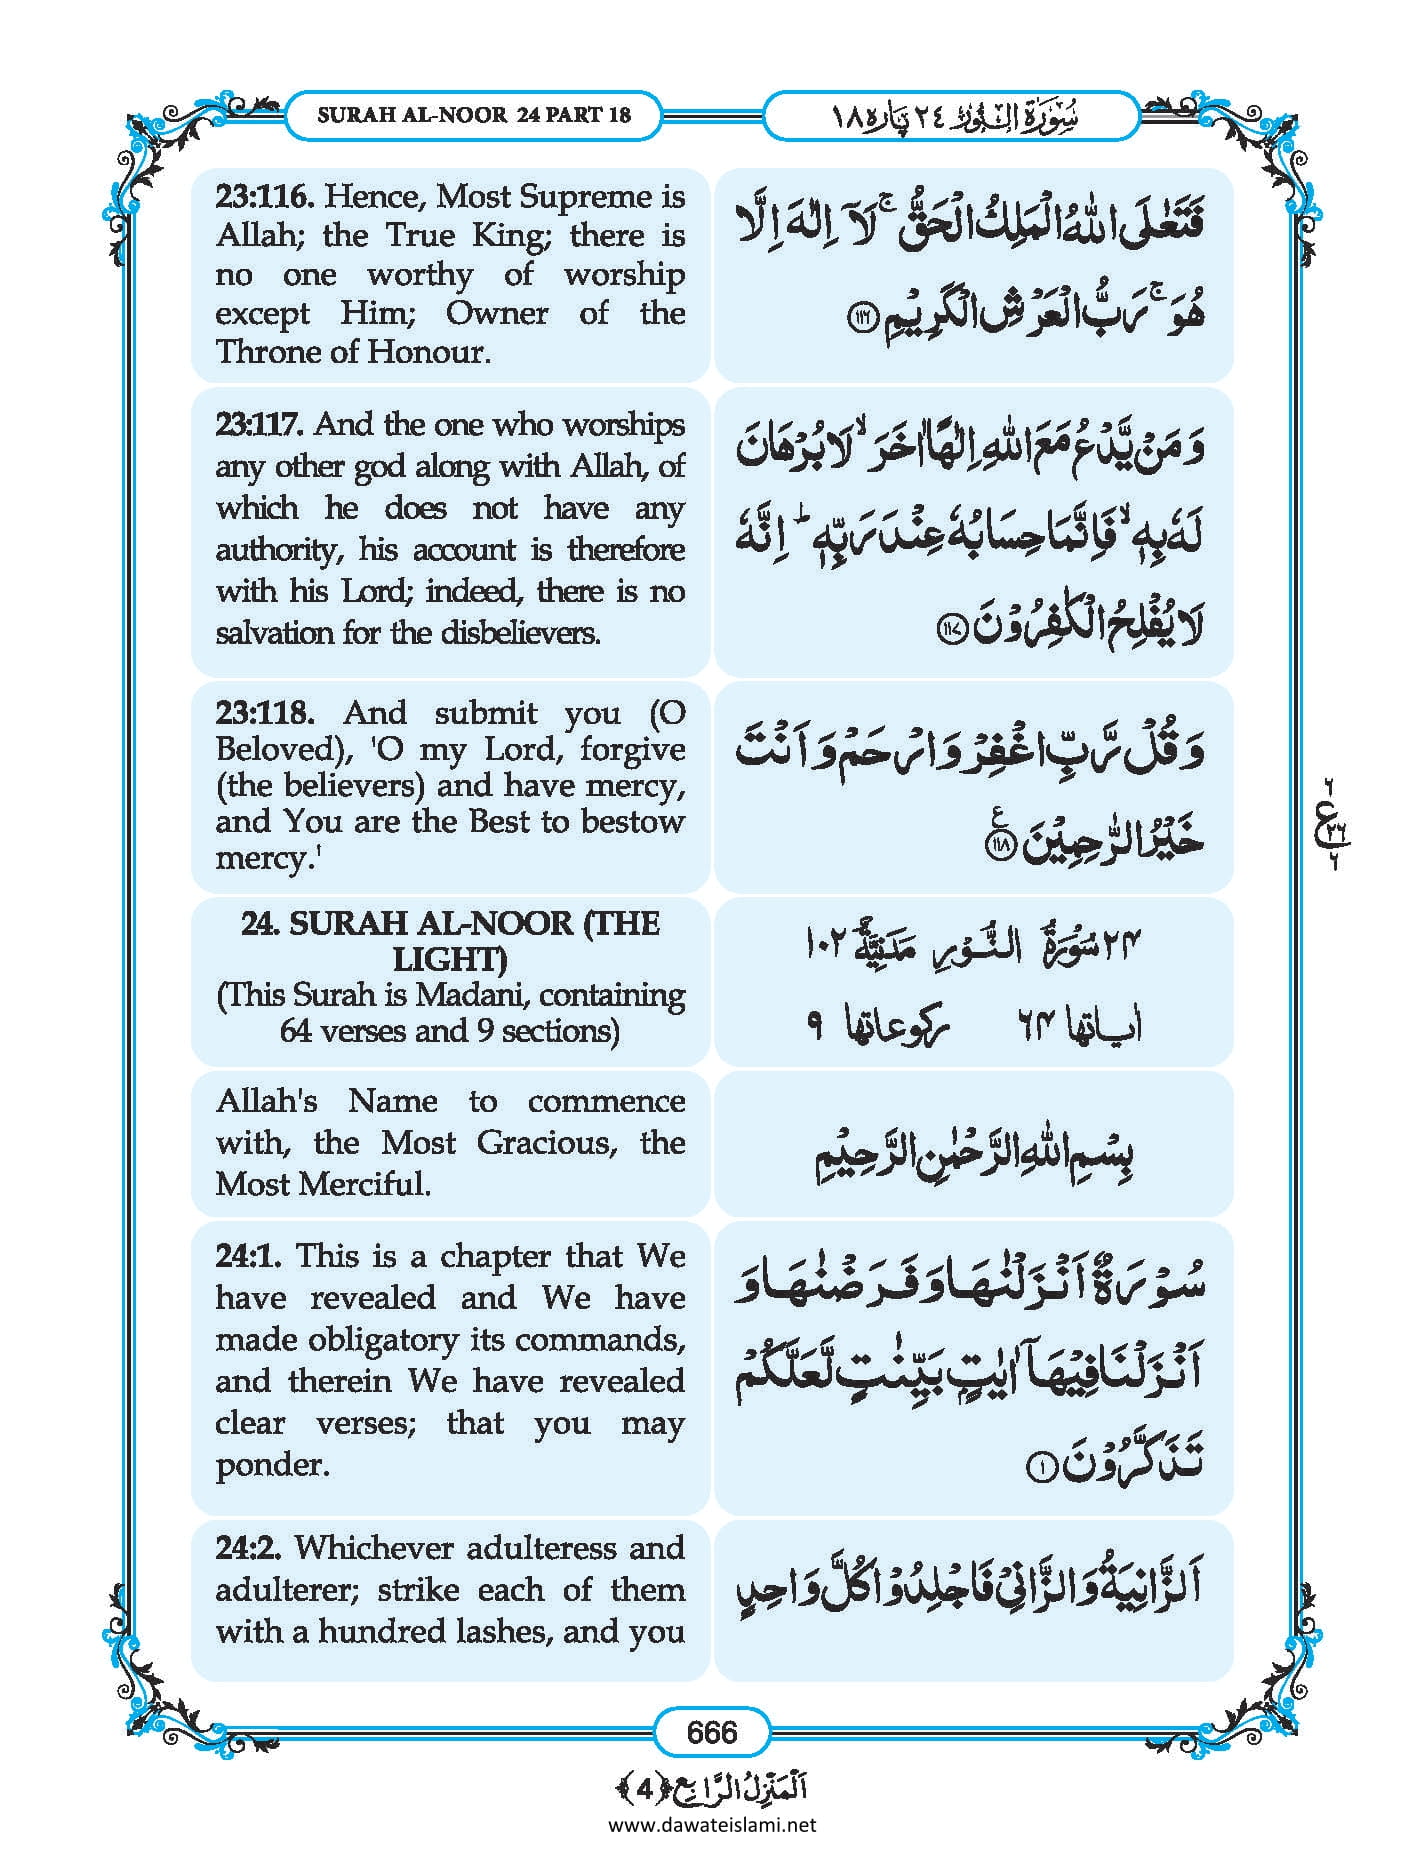 SURAH AL-NOOR 24 PART 18
سُوْرَۃُ النُّوْر ٢٤ پارہ ١٨
23:116. Hence, Most Supreme is
Allah; the True King; there is
no one worthy of worship
except Him; Owner of the
Throne of Honour.
فَتَعٰلَی اللّٰهُ الْمَلِكُ الْحَقُّ ۚ لَاۤ اِلٰهَ اِلَّا
هُوَ ۚ رَبُّ الْعَرْشِ الْكَرِیْمِ ﴿۱۱۶﴾
23:117. And the one who worships
any other god along with Allah, of
which he does not have any
authority, his account is therefore
with his Lord; indeed, there is no
salvation for the disbelievers.
وَ مَنْ یَّدْعُ مَعَ اللّٰهِ اِلٰهًا اٰخَرَ ۙ لَا بُرْهَانَ
لَهٗ بِهٖ ۙ فَاِنَّمَا حِسَابُهٗ عِنْدَ رَبِّهٖ ؕ اِنَّهٗ
لَا یُفْلِحُ الْكٰفِرُوْنَ ﴿۱۱۷﴾
23:118. And submit you (O
Beloved), 'O my Lord, forgive
(the believers) and have mercy,
and You are the Best to bestow
mercy.'
وَ قُلْ رَّبِّ اغْفِرْ وَ ارْحَمْ وَ اَنْتَ
خَیْرُ الرّٰحِمِیْنَ ﴿۱۱۸﴾ ع
٦
ع ٢٦
٦
24. SURAH AL-NOOR (THE
LIGHT)
(This Surah is Madani, containing
64 verses and 9 sections)
۲۴ سُوْرَةُ النُّـوْرِ مَدَنِیَّةٌ ۱۰۲
ایـاتها ۶۴ رکوعاتها ۹
Allah's Name to commence
with, the Most Gracious, the
Most Merciful.
بِسْمِ اللّٰهِ الرَّحْمٰنِ الرَّحِیْمِ
24:1. This is a chapter that We
have revealed and We have
made obligatory its commands,
and therein We have revealed
clear verses; that you may
ponder.
سُوْرَةٌ اَنْزَلْنٰهَا وَ فَرَضْنٰهَا وَ
اَنْزَلْنَا فِیْهَاۤ اٰیٰتٍۭ بَیِّنٰتٍ لَّعَلَّكُمْ
تَذَكَّرُوْنَ ﴿۱﴾
24:2. Whichever adulteress and
adulterer; strike each of them
with a hundred lashes, and you
اَلزَّانِیَةُ وَ الزَّانِیْ فَاجْلِدُوْا كُلَّ وَاحِدٍ
666
اَلْمَنْزِلُ الرَّابِع ﴿4﴾
www.dawateislami.net